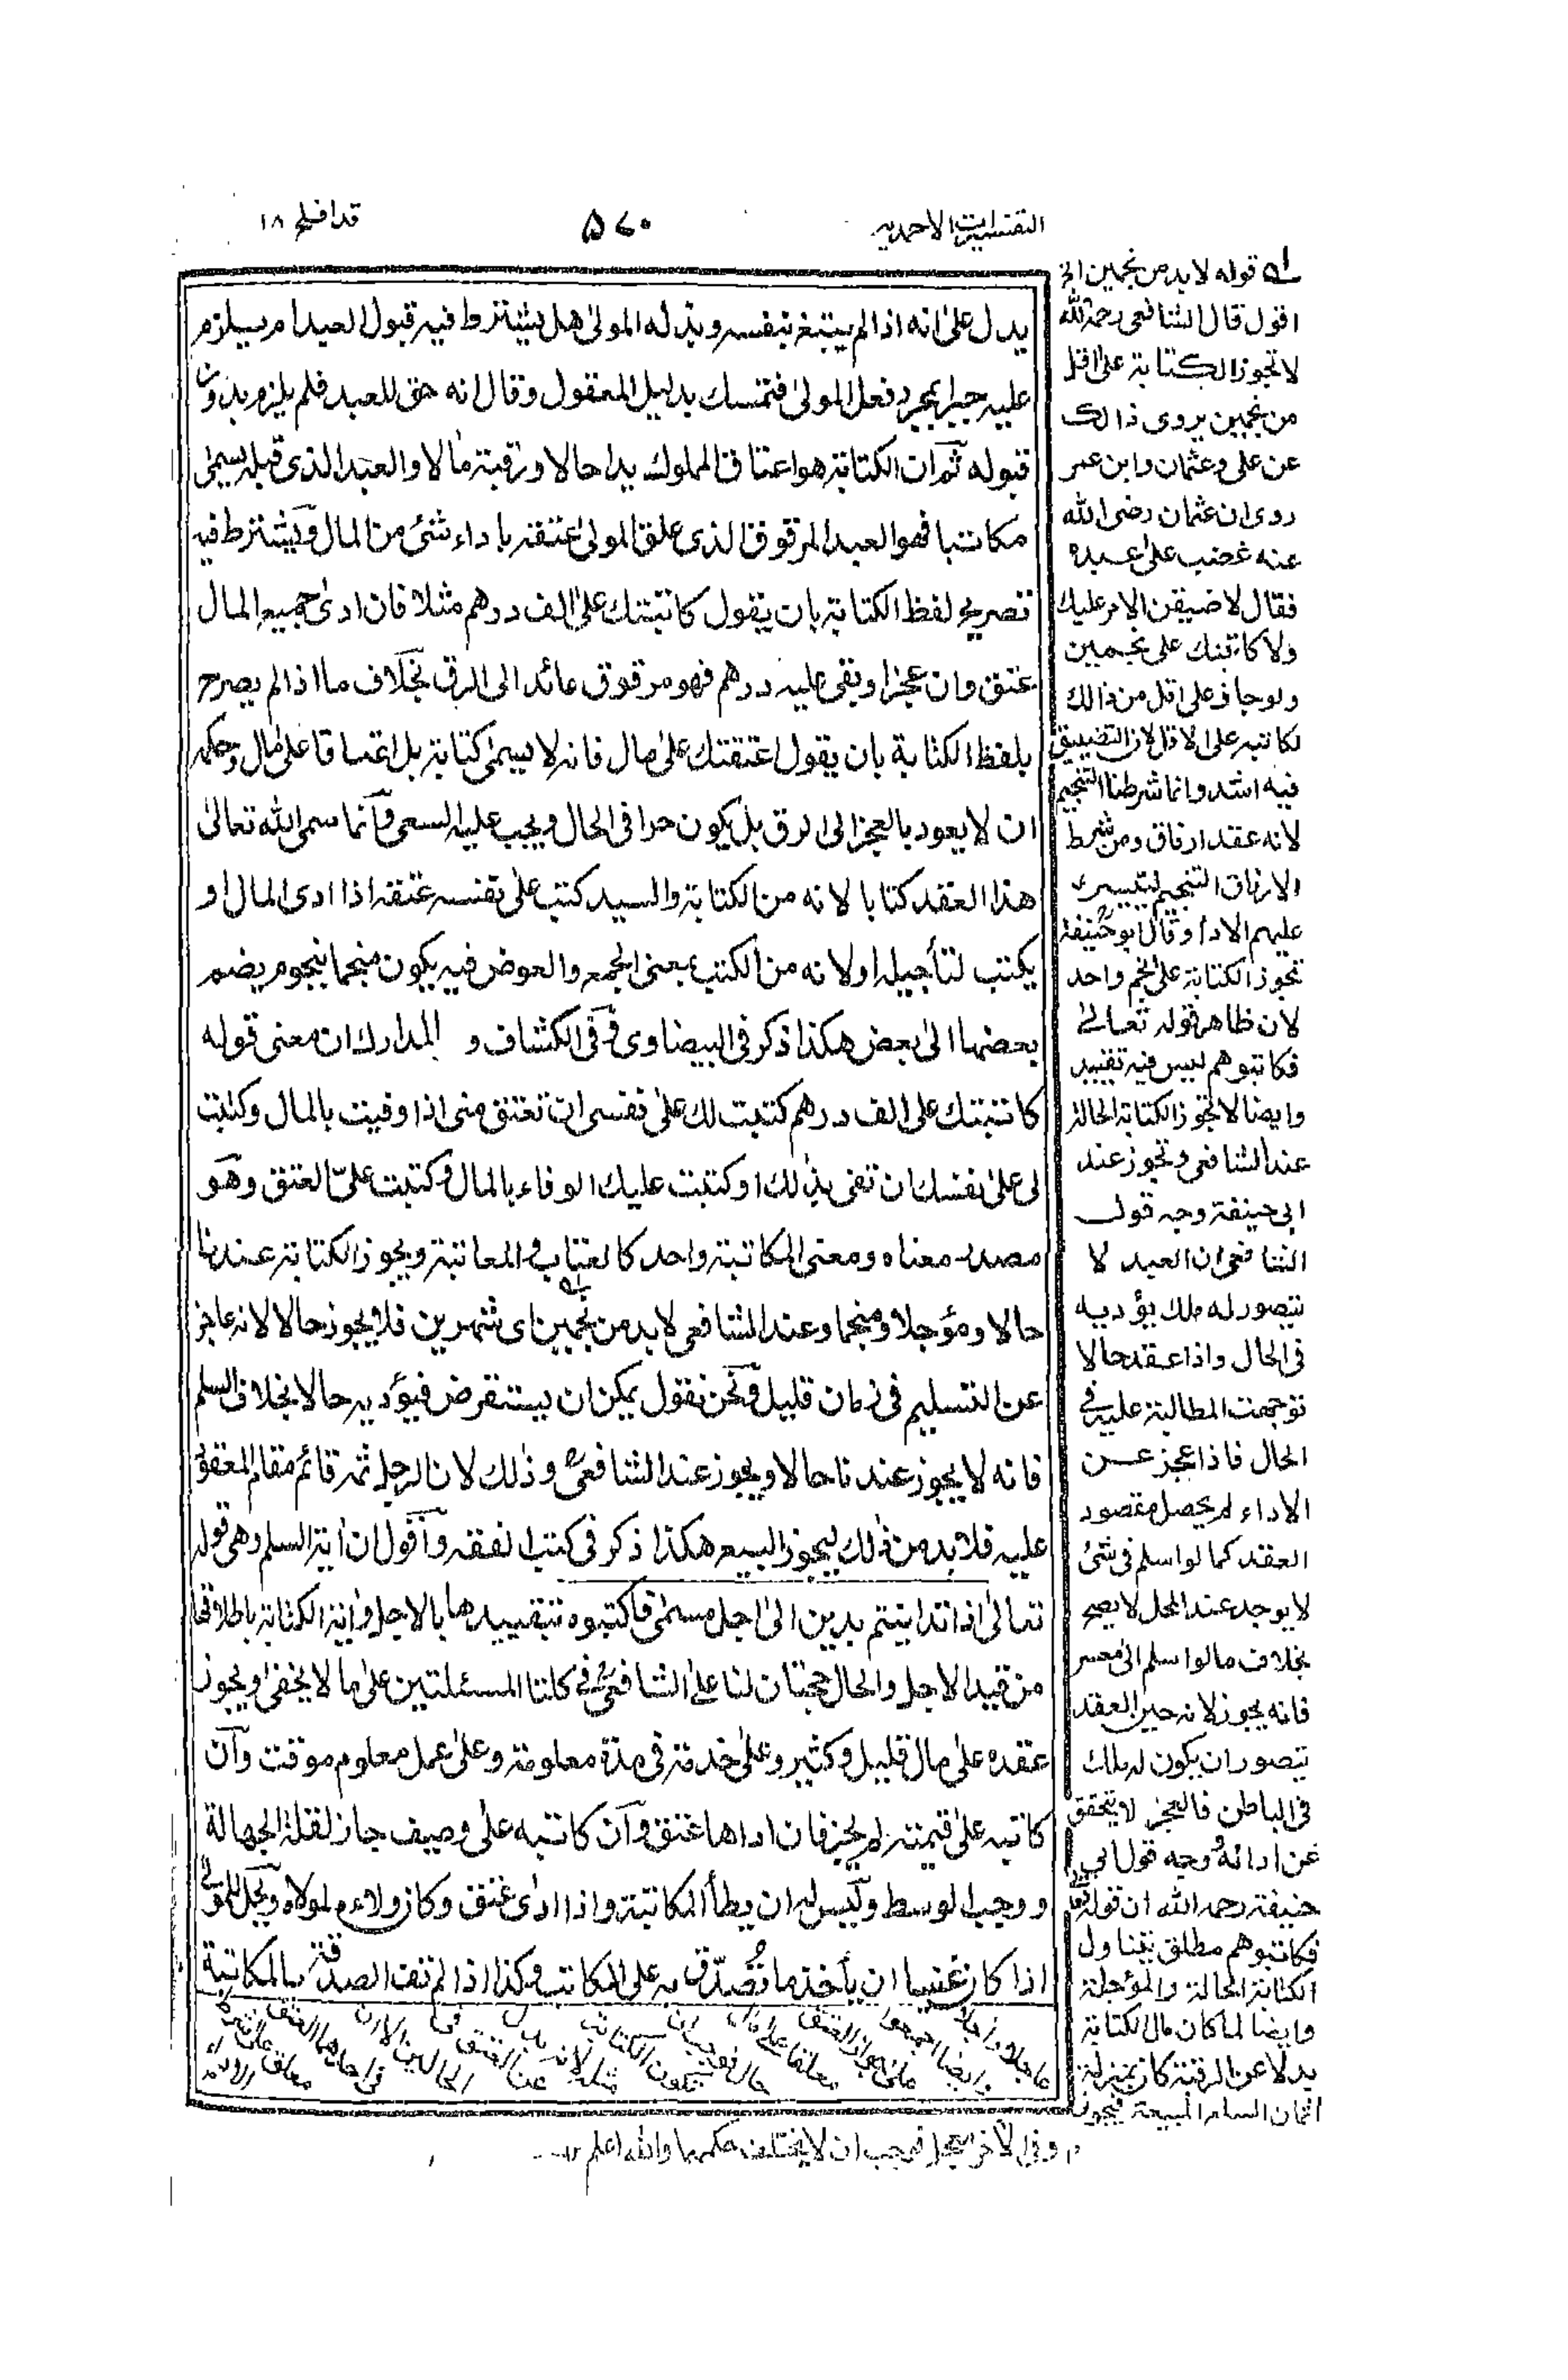 التفسيرات الاحمديه
۵۷۰
قد افلح ۱۸
يدل على انه اذا لم يبتغ بنفسه وبذله المولى هل يشترط فيه قبول العبد ام يلزم
عليه جبرا بمجرد فعل المولى فتمسك بدليل المعقول وقال انه حق للعبد فلم يلزم بدون
قبوله ثم ان الكتابة هو اعتاق المملوك يدا حالا ورقبة مالا والعبد الذى قبله يسمى
مكاتبا فهو العبد المرقوق الذى علق المولى عتقه باداء شئ من المال ويشترط فيه
تصريح لفظ الكتابة بان يقول كاتبتك على الف درهم مثلا فان ادى جميع المال
عتق وان عجز او بقى عليه درهم فهو مرقوق عائد الى الرق بخلاف ما اذا لم يصرح
بلفظ الكتابة بان يقول اعتقتك على مال فانه لا يسمى كتابة بل اعتاقا على مال وحكمه
ان لا يعود بالعجز الى الرق بل يكون حرا فى الحال ويجب عليه السعى وانما سمى الله تعالى
هذا العقد كتابا لانه من الكتابة والسيد كتب على نفسه عتقه اذا ادى المال او
يكتب لتأجيله او لانه من الكتب بمعنى الجمع والعوض فيه يكون منجما بنجوم يضم
بعضها الى بعض هكذا ذكر فى البيضاوى وفى الكشاف و المدارك ان معنى قوله
كاتبتك على الف درهم كتبت لك على نفسى ان تعتق منى اذا وفيت بالمال وكتبت
لى على نفسك ان تفى بذلك او كتبت عليك الوفاء بالمال وكتبت علىّ العتق وهو
مصدر معناه ومعنى المكاتبة واحد كالعتاب والمعاتبة ويجوز الكتابة عندنا
حالا ومؤجلا ومنجما وعند الشافعى لابد من نجمين اى شهرين فلا يجوز حالا لانه عاجز
عن التسليم فى زمان قليل ونحن نقول يمكن ان يستقرض فيؤديه حالا بخلاف السلم
فانه لا يجوز عندنا حالا ويجوز عند الشافعىؒ وذلك لان الرجل ثمه قائم مقام المعقود
عليه فلابد من ذلك ليجوز البيع هكذا ذكر فى كتب الفقه واقول ان اية السلم وهى قوله
تعالى اذا تداينتم بدين الى اجل مسمى فاكتبوه بتقييدها بالاجل واية الكتابة باطلاقها
من قيد الاجل والحال حجتان لنا على الشافعىؒ فى كلتا المسئلتين على ما لا يخفى ويجوز
عقده على مال قليل وكثير وعلى خدمة فى مدة معلومة وعلى عمل معلوم موقت وان
كاتبه على قيمته لم يجز فان اداها عتق وان كاتبه على وصيف جاز لقلة الجهالة
ووجب الوسط وليس له ان يطأ المكاتبة واذا ادى عتق وكان ولاءه لمولاه ويحل للمولى
اذا كان غنيا ان يأخذ ما تُصُدّق به على المكاتب وكذا اذا لم تف الصدقة بالمكاتبة
له قوله لابد من نجمين الخ
اقول قال الشافعى رحمة الله
لا تجوز الكتابة على اقل
من نجمين يروى ذالك
عن على وعثمان وابن عمر
روى ان عثمان رضى الله
عنه غضب على عبده
فقال لاضيقن الامر عليك
ولاكاتبنك على نجمين
ولو جاز على اقل من ذالك
لكاتبه على الاقل لان التضييق
فيه اشد وانما شرطنا التنجيم
لانه عقد ارفاق ومن شرط
الارفاق التنجيم ليتيسر
عليهم الاداء وقال ابو حنيفةؒ
تجوز الكتابة على نجم واحد
لان ظاهر قوله تعالى
فكاتبوهم ليس فيه تقييد
وايضا لا تجوز الكتابة الحالة
عند الشافعى وتجوز عند
ابى حنيفة وجه قول
الشافعى ان العبد لا
يتصور له ملك يؤديه
فى الحال واذا عقد حالا
توجهت المطالبة عليه فى
الحال فاذا عجز عن
الاداء لم يحصل مقصود
العقد كما لو اسلم فى شئ
لا يوجد عند المحل لا يصح
بخلاف ما لو اسلم الى معسر
فانه يجوز لانه حين العقد
يتصور ان يكون له ملك
فى الباطن فالعجز لا يتحقق
عن ادائه وجه قول ابى
حنيفة رحمه الله ان قوله تعالى
فكاتبوهم مطلق يتناول
الكتابة الحالة والمؤجلة
وايضا لما كان مال الكتابة
بدلا عن الرقبة كان بمنزلة
اثمان السلع المبيعة فيجوز
عاجلا واجلا
وايضا اجمعوا
على جواز العتق
معلقا على مال
حال فوجب ان
تكون الكتابة
مثله لانه بدل
عن العتق فى
الحالين الا ان
فى احدهما العتق
معلق على شرط
الاداء
وفى الآخر معجل فوجب ان لا يختلف حكمهما والله اعلم ۱۲